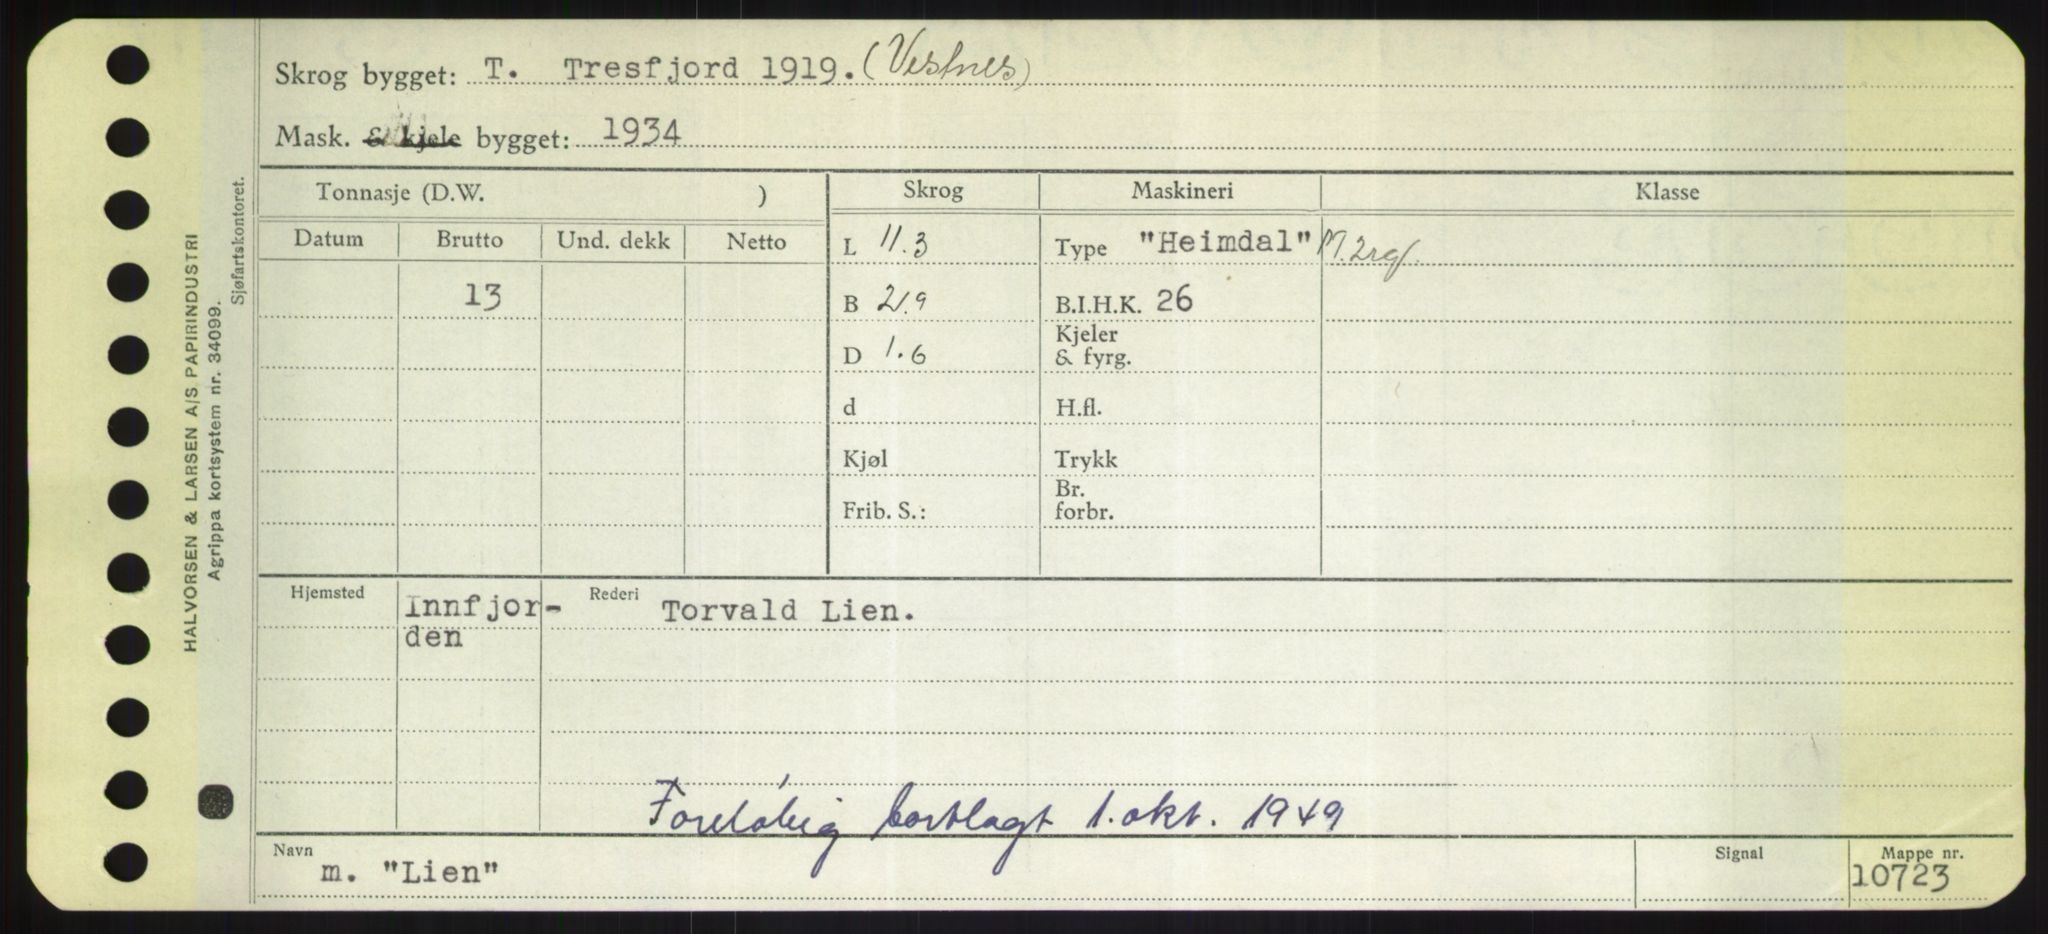 Skrog bygget: T. Tresfjord 1919. (Vestnes)
Mask. & kjele bygget: 1934
Tonnasje (D.W. )
Skrog
Maskineri
Klasse
Datum
Brutto
Und. dekk
Netto
L 11.3
Type "Heimdal"
13
B 2.9
B.I.H.K. 26
D 1.6
Kjeler
& fyrg.
d
H.fl.
Kjøl
Trykk
Frib. S.:
Br.
forbr.
Hjemsted
Innfjor-
den
Rederi
Torvald Lien.
Foreløbig bortlagt 1. okt. 1949
Navn
m. "Lien"
Signal
Mappe nr.
10723
HALVORSEN & LARSEN A/S PAPIRINDUSTRI
Agrippa kortsystem nr. 34099.
Sjøfartskontoret.